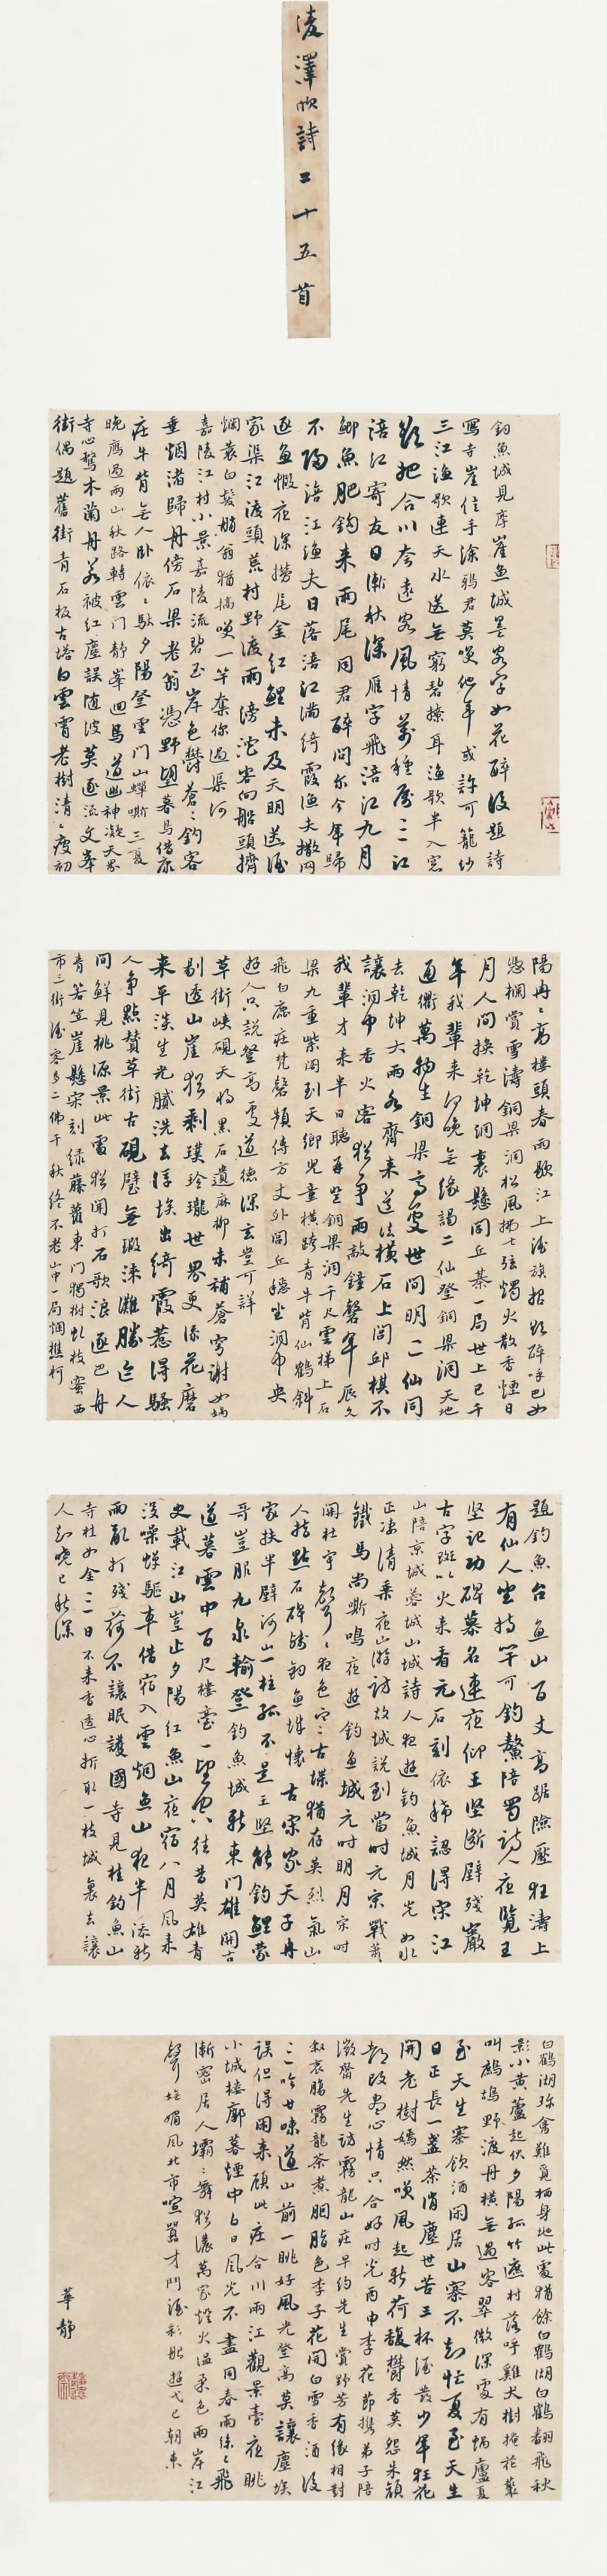 凌澤欣詩二十五首
釣魚城見摩崖魚城墨客字如花醉後題詩
寫寺崖信手涂鴉君莫嘆他年或許可籠紗
三江漁歌連天水送無窮碧撩耳漁歌半入窓
欲把合川夸遠客風情萬種屬三江
涪江寄友日漸秋深雁字飛涪江九月
鯽魚肥鈎來兩尾同君醉問尔今年歸
不歸涪江漁夫日落涪江滿綺霞漁夫撒网
逐魚蝦夜深撈尾金紅鯉未及天明送酒
家渠江渡頭荒村野渡雨滂沱客向船頭擠
爛蓑白髮艄翁猶搞嘆一竿奈你過渠河
嘉陵江村小景嘉陵流碧玉岸色鬱蒼蒼釣客
垂烟渚歸舟傍石梁老翁憑野望暮鳥借
莊牛背無人卧依依馱夕陽登雲門山蟬嘶三夏
晚鷹過兩山秋路轉雲門静峯迴馬道幽神凝天界
寺心驚木蘭舟若被紅塵誤随波莫逐流文峯
街偶題舊街青石板古塔白雲霄老樹清清瘦初
陽冉冉高樓頭春雨歌江上酒旗招欲醉呼巴
憑欄賞雪濤銅梁洞松風拂七弦燭火散香煙日
月人間換乾坤洞裏懸閭丘棊一局世上已千
年我輩來何晚無緣謁二仙登銅梁洞天地
通衢萬物生銅梁高處世間明二仙同
去乾坤大雨水齊來送法横石上閭邱棋不
讓洞中香火客猶爭兩敵鐘磬年辰久
我輩才来半日聽再登銅梁洞千尺雲梯上石
梁九重紫閣到天鄉児童横跨青牛背仙鶴斜
飛白鹿莊梵磬頻傳方丈外閭丘穩坐洞中央
遊人只説登高處道德深玄豈可詳
草街峽硯天將黑石遺麻柳未補蒼穹謝女媧
剔透山崖猶剩璞玲瓏世界更添花磨
来平淡生光膩洗去浮埃出綺霞惹得騷
人争點贊草街古硯璧無瑕涞灘勝迹人
間鮮見桃源景此處猶聞打石歌浪逐巴舟
青笠崖懸宋刻緑藤蘿東門獨樹虬枝蜜西
市三街酒客多二佛千秋終不老山中一局爛樵柯
題釣魚台魚山百丈高踞險壓狂濤上
有仙人坐持竿可釣鰲陪蜀詩人夜覽王
坚記功碑慕名連夜仰王坚断壁残巖
古字斑以火来看元石刻依稀認得宋江
山陪京城蓉城山城詩人夜遊釣魚城月光如水
正凄清乗夜山游訪故城説到當時元宋戰蕭
鐵馬尚嘶鳴夜遊釣魚城元時明月宋時
關杜宇聲聲夜色古堞猶存英烈氣山
人指點石碑殘釣魚城懷古宋家天子冉
家扶半壁河山一柱孤不是王堅能釣鯉蒙
哥豈服九泉輸登釣魚城新東門雄關古
道暮雲中百尺樓臺一望空往昔英雄青
史載江山豈止夕陽紅魚山夜宿八月風来
沒噪蟬驅車借宿入雲烟魚山夜半添新
雨亂打殘荷不讓眠護國寺見桂釣魚山
寺桂如金三日不来香透心折取一枝城裏去讓
人知曉已秋深
白鶴湖珎禽難覓栖身地此處猶餘白鶴湖白鶴翻飛秋
影小黄蘆起伏夕陽孤竹遮村落呼雞犬樹掩花叢
叫鷓鴣野渡舟横無過客翠微深處有蝸廬夏
至天生寨飲酒閑居山寨不知忙夏至天生
日正長一盞茶消塵世苦三杯酒發少年狂花
開老樹嫣然嘆風起新荷馥鬱香莫怨朱顔
都改盡心情只合好時光丙申李花節携弟子陪
澂齋先生訪霧龍山莊早約先生賞野芳有緣相對
叙衷腸霧龍茶煮胭脂色李子花開白雪香酒後
三吟甘味道山前一眺好風光登高莫讓塵埃
誤但得閑来碩此莊合川兩江觀景臺夜眺
小城樓廓暮煙中白日風光不盡同春雨絲絲飛
漸密居人壩壩舞猶濃萬家燈火温柔色兩岸江
聲嫵媚風北市喧囂才閂酒彩船遊弋已朝東
華静